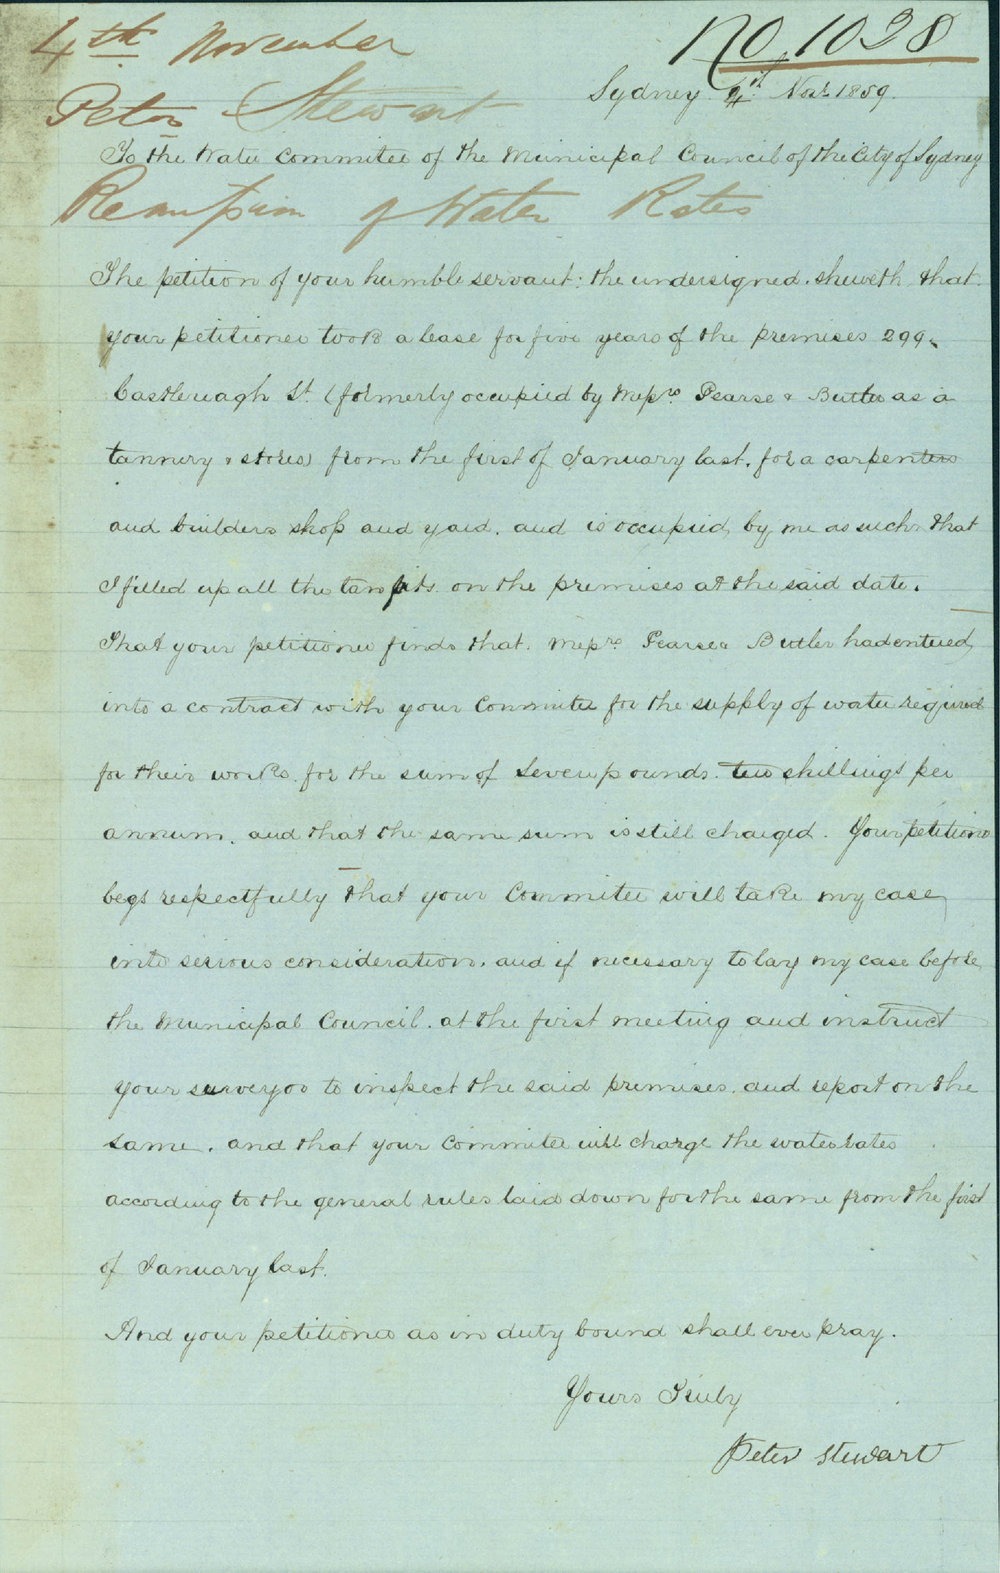 4th November
No 1028
Peter Stewart
Sydney 4th Novr 1859.
To the Water Committee of the Municipal Council of the City of Sydney
Remission of Water Rates
The petition of your humble servant; the undersigned. sheweth that
your petitioner took a lease for five years of the premises 299.
Castlereagh St. (formerly occupied by Messrs. Pearse & Butler as a
tannery & stores) from the first of January last. for a carpenters
and builders shop and yard. and is occupied by me as such. that
I filled up all the tan pits on the premises at the said date.
That your petitioner finds that. Messrs. Pearse & Butler had entered
into a contract with your Committee for the supply of water required
for their works. for the sum of seven pounds. ten shillings per
annum. and that the same sum is still charged. Your petitioner
begs respectfully that your Committee will take my case
into serious consideration. and if necessary to lay my case before
the Municipal Council. at the first meeting and instruct
your surveyor to inspect the said premises. and report on the
same. and that your Committee will charge the water rates
according to the general rules laid down for the same from the first
of January last.
And your petitioner as in duty bound shall ever pray.
Yours Truly
Peter Stewart